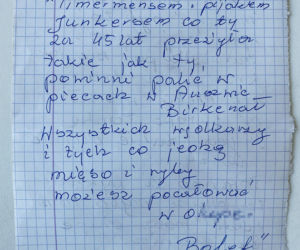 Timermensem i pijakiem
Junkersem co ty
za 45 lat przeżyła
Takie jak ty,
powinni palić w
piecach w
Birkenał
Wszystkich wędkarzy
i tych co jedzą
mięso i ryby
możesz pocałować
w
Bolek"